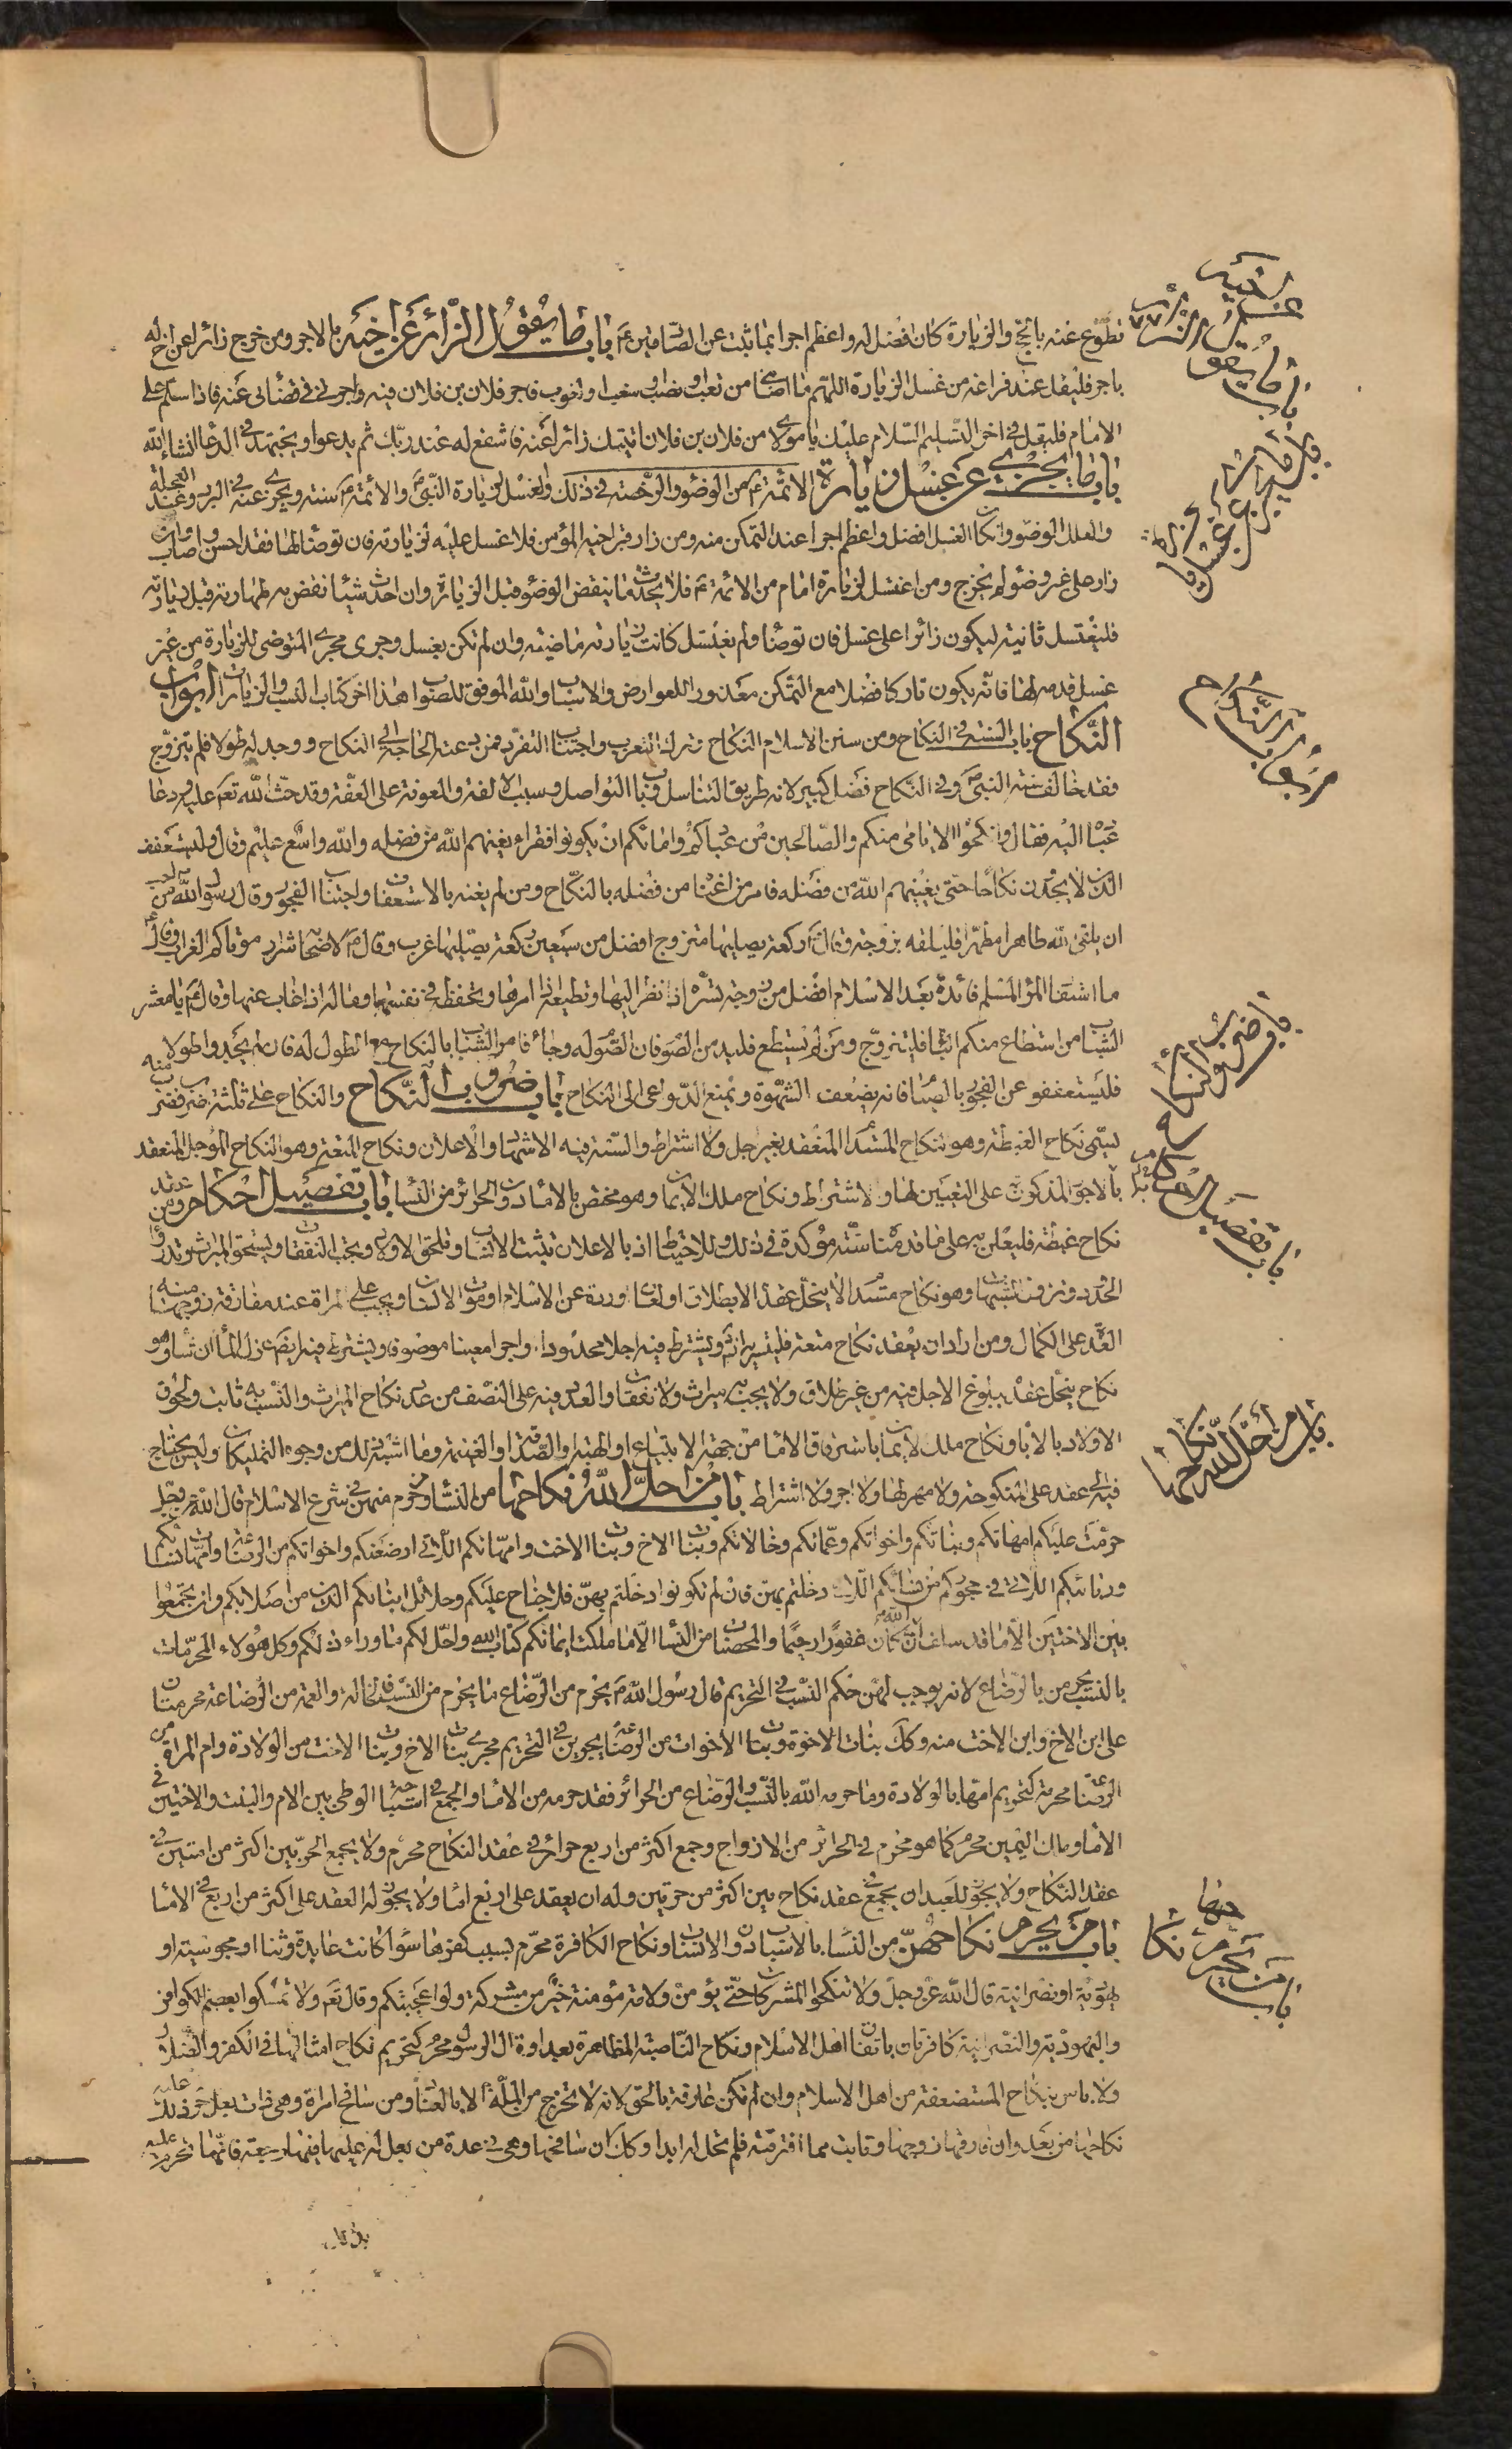 تطوع عنه بالحج والزيارة كان افضل له واعظم اجرا بما ثبت عن الصادقين ع باب ما يقول الزائر عن اخيه بالاجر ومن خرج زائرا عن اخ له
باجر فليقل عند فراغه من غسل الزيارة اللهم ما اصابني من تعب او نصب او سغب او لغوب فاجر فلان بن فلان فيه واجرني في قضائي عنه فاذا سلم على
الامام فليقل في اخر التسليم السلام عليك يا مولاي من فلان بن فلان اتيتك زائرا عنه فاشفع له عند ربك ثم يدعوا ويجتهد في الدعا انشاء الله
باب ما يجزي عن غسل زيارة الائمة ع من الوضوء والرخصة في ذلك والغسل لزيارة النبي ص والائمة ع سنة ويجزي عنه في البرد وعند العجلة
والعلل الوضوء وان كان الغسل افضل واعظم اجرا عند التمكن منه ومن زار قبر اخيه المؤمن فلا غسل عليه لزيارته فان توضأ لها فقد احسن واصاب وان
زار على غير وضوء لم يحرج ومن اغتسل لزيارة امام من الائمة ع فلا يحدث ما ينقض الوضوء قبل الزيارة وان احدث شيئا نقض به طهارته قبل زيارته
فليغتسل ثانية ليكون زائرا على غسل فان توضأ ولم يغتسل كانت زيارته ماضية وان لم تكن بغسل وجرى مجرى المتوضى للزيارة من غير
غسل قدمه لها فانه يكون تاركا فضلا مع التمكن معذورا للعوارض والاسباب والله الموفق للصواب هذا اخر كتاب النسب والزيارات ابواب
النكاح باب السنة في النكاح ومن سنن الاسلام النكاح وترك التعرب واجتناب التفرد فمن دعته الحاجة الى النكاح ووجد له طولا فلم يتزوج
فقد خالف سنة النبي ص وفي النكاح فضل كبير لانه طريق التناسل وباب التواصل وسبب الالفة والمعونة على العفة وقد حث الله تعم عليه ودعا
عباده اليه فقال وانكحوا الايامى منكم والصالحين من عبادكم وامائكم ان يكونوا فقراء يغنهم الله من فضله والله واسع عليم وقال وليستعفف
الذين لا يجدون نكاحا حتى يغنيهم الله من فضله فامر من اغناه من فضله بالنكاح ومن لم يغنه بالاستعفاف واجتناب الفجور وقال رسول الله ص من احب
ان يلقى الله طاهرا مطهرا فليلقه بزوجة وقال ع ركعة يصليها متزوج افضل من سبعين ركعة يصليها عزب وقال ع لاصحابه شرار موتاكم العزاب وقال ع
ما استفاد المرء المسلم فائدة بعد الاسلام افضل من زوجة تسره اذا نظر اليها وتطيعه اذا امرها وتحفظه في نفسها وماله اذا غاب عنها وقال ع يا معشر
الشباب من استطاع منكم الباه فليتزوج ومن لم يستطع فليدمن الصوم فان الصوم له وجاء فامر الشباب بالنكاح مع الطول له فان لم يجدوا طولا
فليستعففوا عن الفجور بالصيام فانه يضعف الشهوة ويمنع الدواعى الى النكاح باب ضروب النكاح والنكاح على ثلثة اضرب فضرب منه
يسمى نكاح الغبطة وهو نكاح المستدام المنعقد بغير اجل ولا اشتراط والسنة فيه الاشهاد والاعلان ونكاح المتعة وهو النكاح المؤجل المنعقد
بالاجور المذكورة على التعيين لها والاشتراط ونكاح ملك الايمان وهو مختص بالاماء دون الحرائر من النساء باب تفصيل احكام ومن عقد
نكاح غبطة فليعلن به على ما قدمناه سنة مؤكدة في ذلك وللاحتياط اذ بالاعلان تثبت الانساب وتلحق الاولاد وتجب النفقات ويستحق الميراث وتدرؤا
الحدود وتزول الشبهات وهو نكاح مستدام لا ينحل عقده الا بطلاق او لعان او ردة عن الاسلام او موت الانسان ويجب على المراة عند مفارقة زوجها منه
العدة على الكمال ومن اراد ان يعقد نكاح متعة فليستبرأ ثم ويشترط فيه اجلا محدودا واجرا معينا موصوفا ويشترط فيه ايضا عزل الماء ان شاء وهو
نكاح ينحل عقده ببلوغ الاجل فيه من غير طلاق ولا يجب به ميراث ولا نفقات والعدة فيه على النصف من عدة نكاح الميراث والنسب به ثابت ولحوق
الاولاد بالاباء ونكاح ملك الايمان باسترقاق الاماء من جهة الابتياع او الهبة او الصدقة او الغنيمة وما اشبه ذلك من وجوه التمليكات وليس يحتاج
فيه الى عقد على المنكوحة ولا مهر لها ولا اجر ولا اشتراط باب من احل الله نكاحها من النساء وحرم منهن في شرع الاسلام قال الله عز وجل
حرمت عليكم امهاتكم وبناتكم واخواتكم وعماتكم وخالاتكم وبنات الاخ وبنات الاخت وامهاتكم اللاتي ارضعنكم واخواتكم من الرضاعة وامهات نسائكم
وربائبكم اللاتي في حجوركم من نسائكم اللاتي دخلتم بهن فان لم تكونوا دخلتم بهن فلا جناح عليكم وحلائل ابنائكم الذين من اصلابكم وان تجمعوا
بين الاختين الا ما قد سلف ان الله كان غفورا رحيما والمحصنات من النساء الا ما ملكت ايمانكم كتاب الله واحل لكم ما وراء ذلكم وكل هؤلاء المحرمات
بالنسب يحرمن بالرضاع لانه يوجب لهن حكم النسب في التحريم قال رسول الله ص يحرم من الرضاع ما يحرم من النسب فالخالة والعمة من الرضاعة محرمتان
على ابن الاخ وابن الاخت منه وكذلك بنات الاخوة وبنات الاخوات من الرضاعة يجرين في التحريم مجرى بنات الاخ وبنات الاخت من الولادة وام المراة من
الرضاع محرمة كتحريم امها بالولادة وما حرمه الله بالنسب والرضاع من الحرائر فقد حرمه من الاماء والجمع في استباحة الوطى بين الام والبنت والاختين في
الاماء وملك اليمين محرم كما هو محرم في الحرائر من الازواج وجمع اكثر من اربع حرائر في عقد النكاح محرم ولا يجمع الحر بين اكثر من امتين في
عقد النكاح ولا يجوز للعبد ان يجمع في عقد نكاح بين اكثر من حرتين وله ان يعقد على اربع اماء ولا يجوز له العقد على اكثر من اربع في الاماء
باب من يحرم نكاحهن من النساء بالاسباب دون الانساب ونكاح الكافرة محرم بسبب كفرها سواء كانت عابدة وثنا او مجوسية او
يهودية او نصرانية قال الله عز وجل ولا تنكحوا المشركات حتى يؤمن ولامة مؤمنة خير من مشركة ولو اعجبتكم وقال تعم ولا تمسكوا بعصم الكوافر
واليهودية والنصرانية كافرتان باتفاق اهل الاسلام ونكاح الناصبة المظاهرة بعداوة ال الرسول محرم كتحريم نكاح امثالها في الكفر والضلال
ولا باس بنكاح المستضعفة من اهل الاسلام وان لم تكن عارفة بالحق لانه لا تخرج من الملة الا بالعناد ومن سافح امراة وهي ذات بعل حرم عليه ذلك
نكاحها من بعد وان فارقها زوجها وتابت مما اقترفته فلم تحل له ابدا وكذلك ان سافحها وهي في عدة من بعل له عليها فيها رجعة فانها تحرم عليه
باب ما يقول الزائر عن اخيه
باب ما يجزي عن غسل زيارة
ابواب النكاح
باب ضروب النكاح
باب تفصيل احكام
باب من احل الله نكاحها
باب من يحرم نكاحها
بذلك